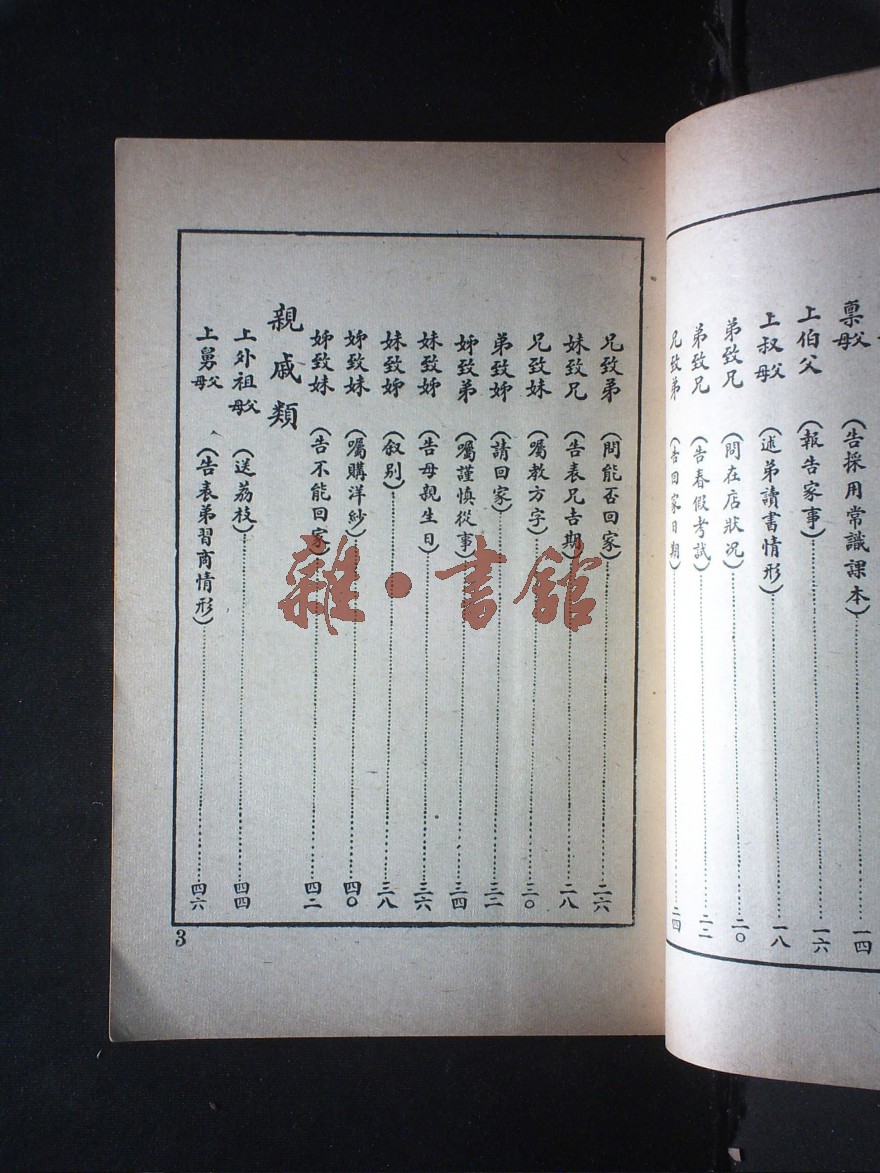 稟父母(告採用常識課本)……一四
上伯父(報告家事)……一六
上叔父母(述弟讀書情形)……一八
弟致兄(問在店狀況)……二〇
弟致兄(告春假考試)……二二
兄致弟(告回家日期)……二四
兄致弟(問能否回家)……二六
妹致兄(告表兄吉期)……二八
兄致妹(囑教方字)……三〇
弟致姊(請回家)……三二
姊致弟(囑謹慎從事)……三四
妹致姊(告母親生日)……三六
妹致姊(敘別)……三八
姊致妹(囑購洋紗)……四〇
姊致妹(告不能回家)……四二
親戚類
上外祖父母(送荔枝)……四四
上舅父母(告表弟習商情形)……四六
3
雜·書館